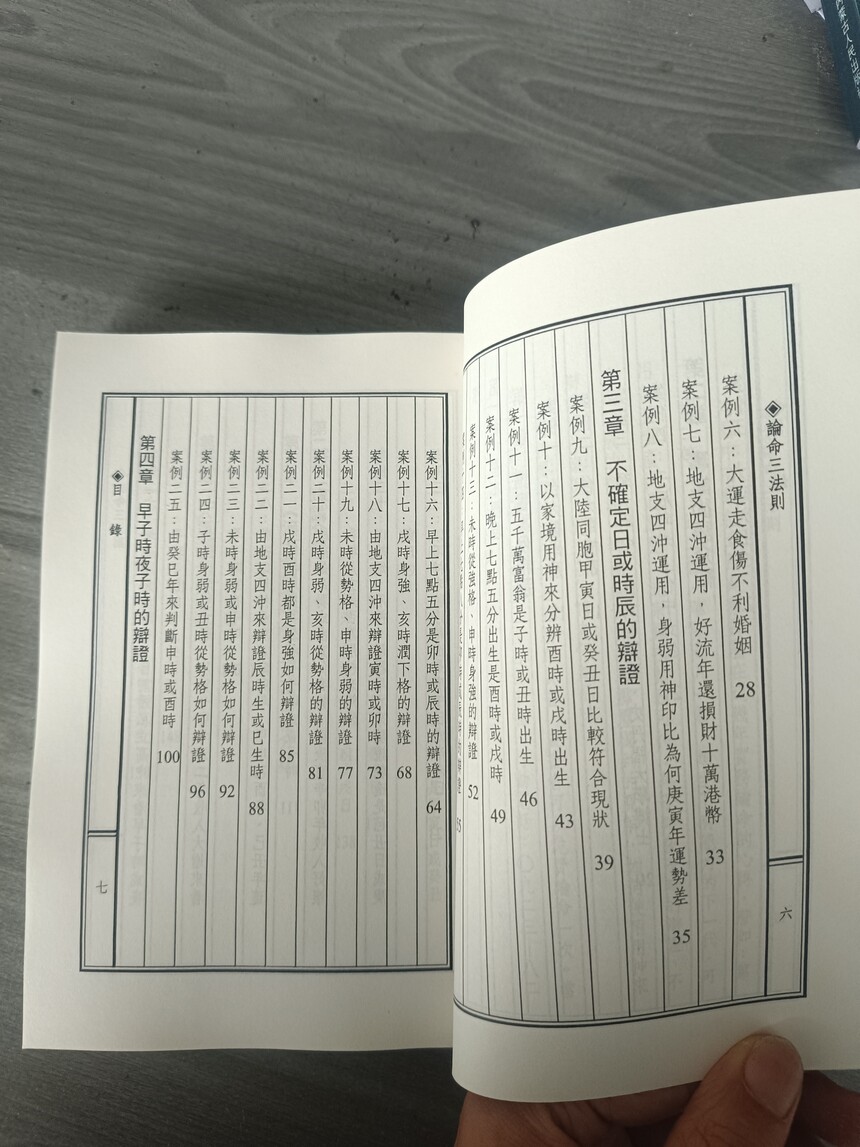 內蒙古人民出版
◈論命三法則
案例六：大運走食傷不利婚姻 28
案例七：地支四沖運用，好流年還損財十萬港幣 33
案例八：地支四沖運用，身弱用神印比為何庚寅年運勢差 35
第三章 不確定日或時辰的辯證
案例九：大陸同胞甲寅日或癸丑日比較符合現狀 39
案例十：以家境用神來分辨酉時或戌時出生 43
案例十一：五千萬富翁是子時或丑時出生 46
案例十二：晚上七點五分出生是酉時或戌時 49
案例十三：未時從強格、申時身強的辯證 52
六
案例十六：早上七點五分是卯時或辰時的辯證 64
案例十七：戌時身強、亥時潤下格的辯證 68
案例十八：由地支四沖來辯證寅時或卯時 73
案例十九：未時從勢格、申時身弱的辯證 77
案例二十：戌時身弱、亥時從勢格的辯證 81
案例二一：戌時酉時都是身強如何辯證 85
案例二二：由地支四沖來辯證辰時生或巳生時 88
案例二三：未時身弱或申時從勢格如何辯證 92
案例二四：子時身弱或丑時從勢格如何辯證 96
案例二五：由癸巳年來判斷申時或酉時 100
第四章 早子時夜子時的辯證
◈目錄
七